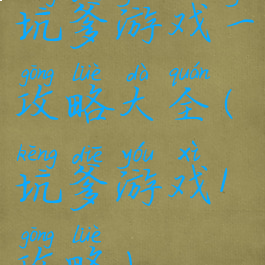 坑爹游戏二
gōng lüè dà quán
攻略大全(
kēng diē yóu xì
坑爹游戏1
gōng lüè
攻略)